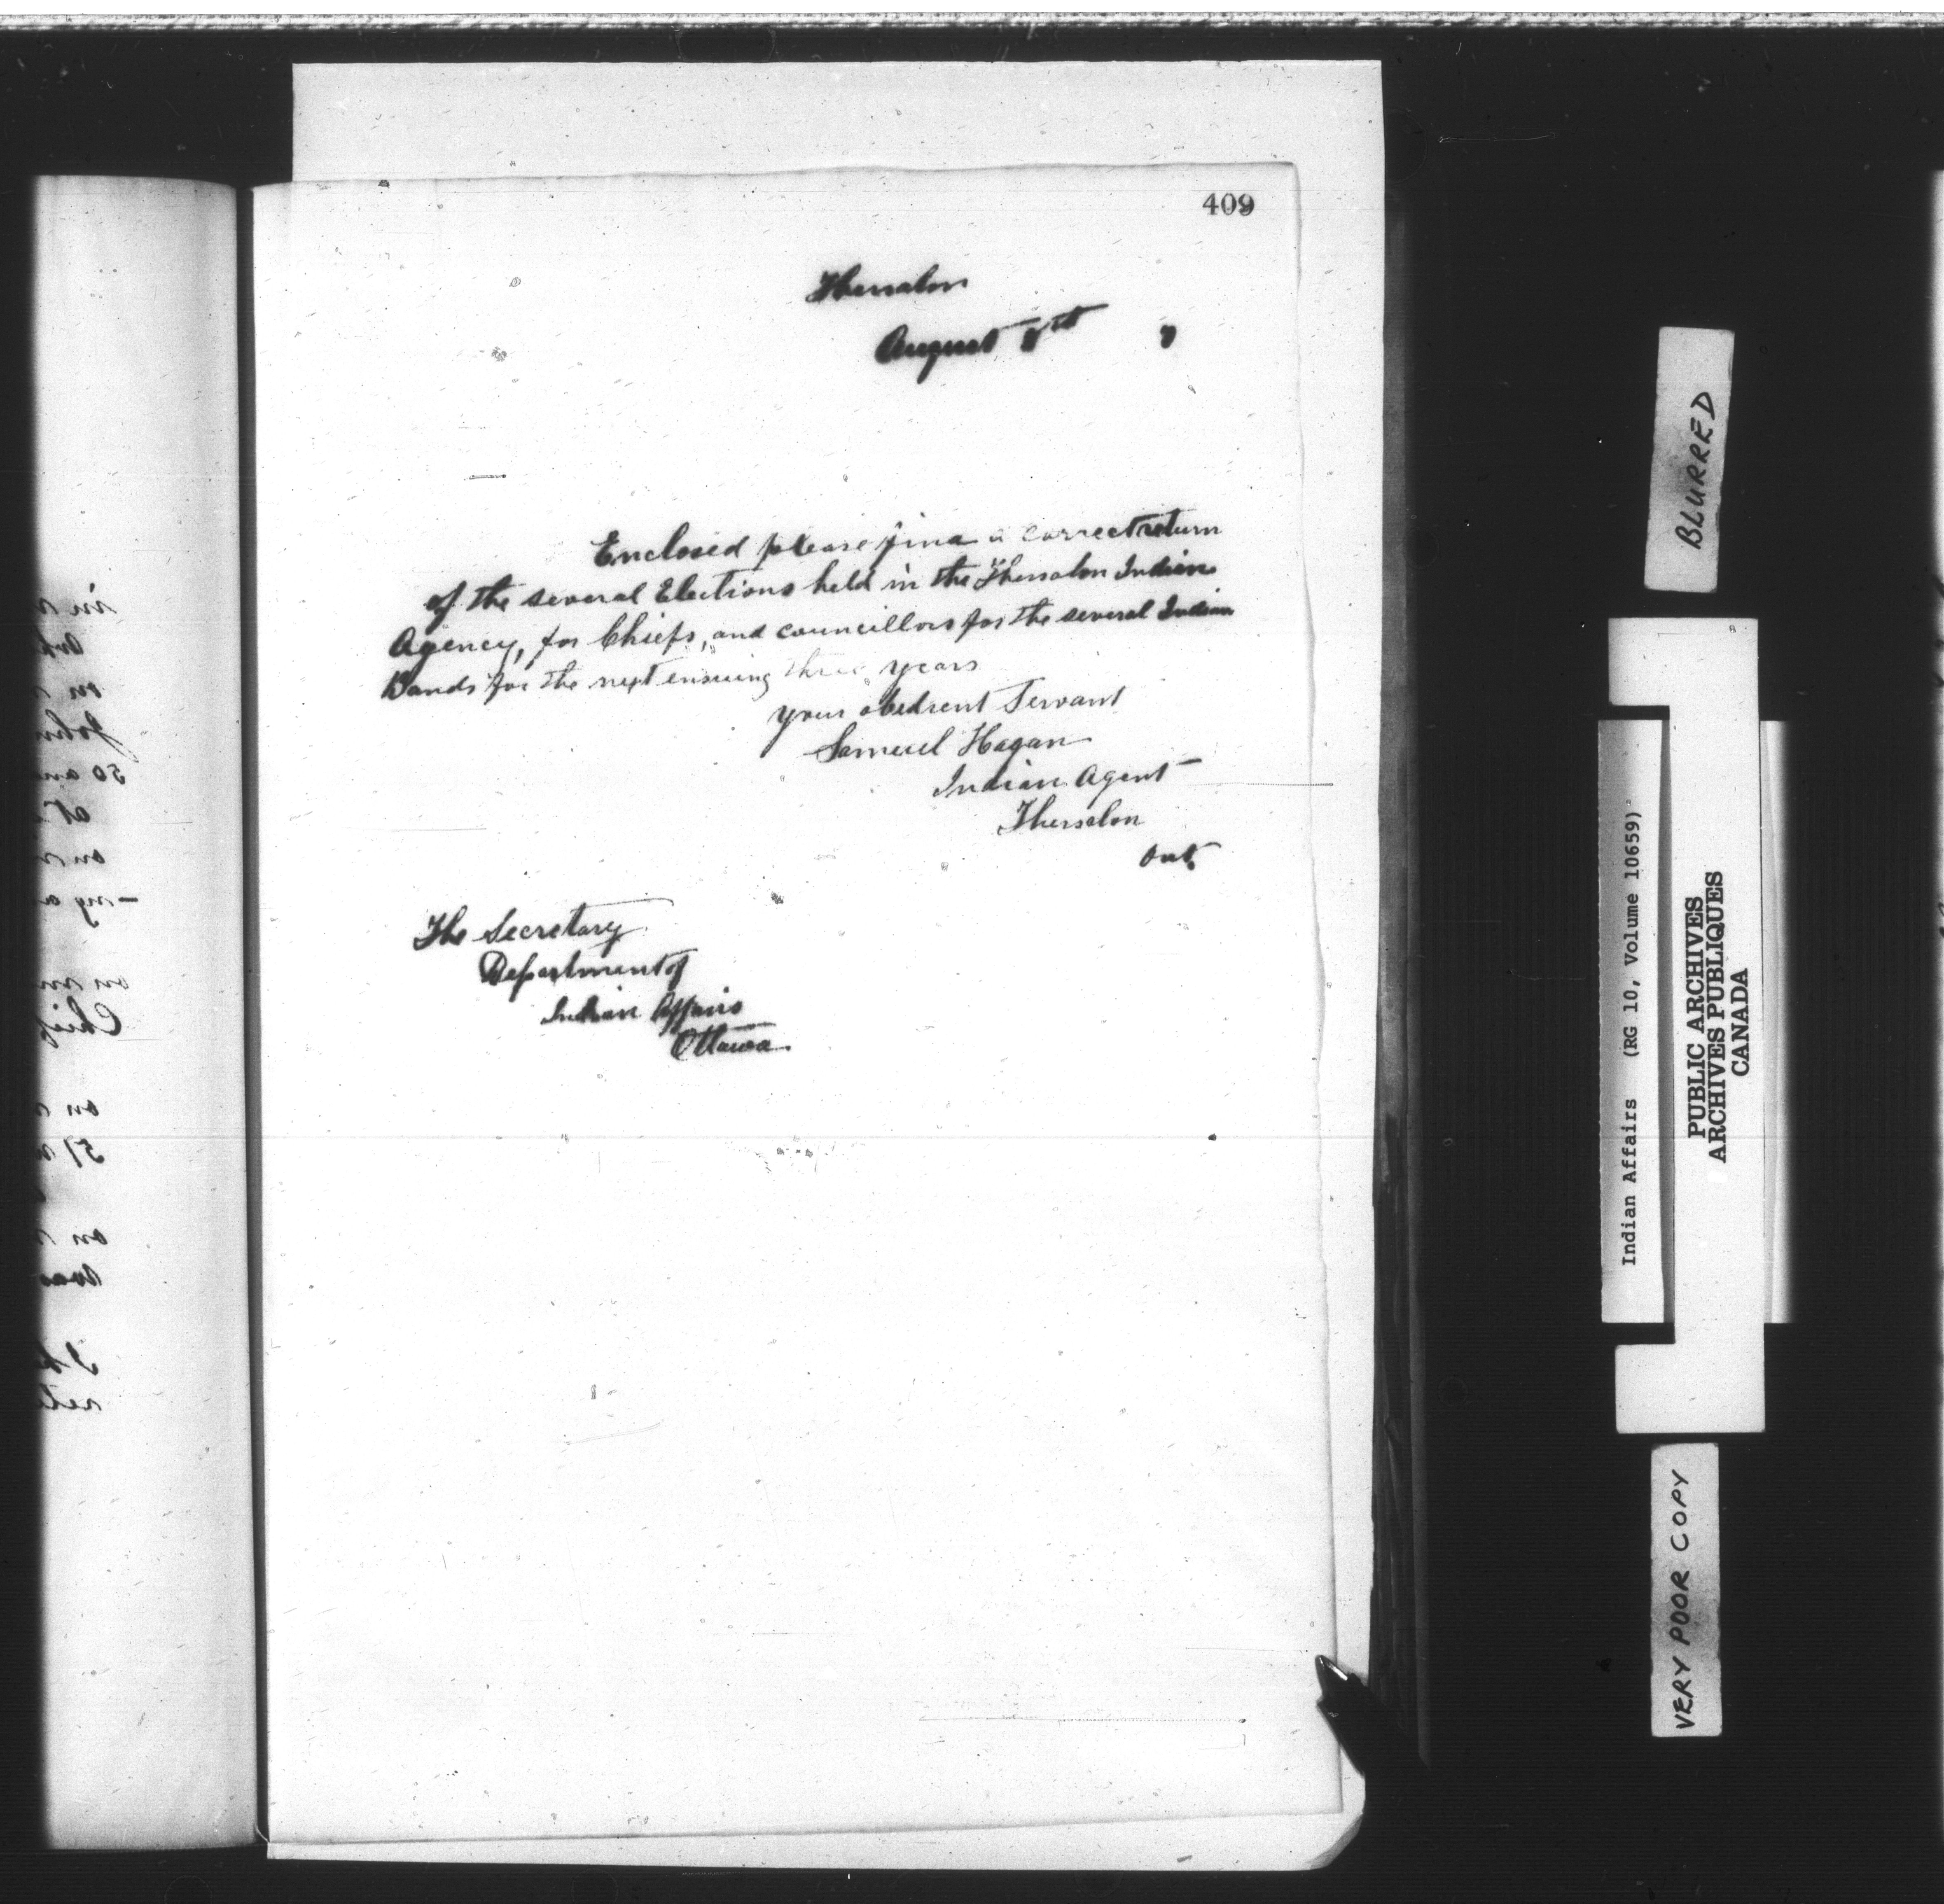 409
Thessalon
August 8th 7
Enclosed please find a correct return
of the several Elections held in the Thessalon Indian
Agency, for Chiefs, and councillors for the several Indian
Bands for the next ensuing three years
your obedient Servant
Samuel Hagan
Indian Agent
Thessalon
Ont.
The Secretary
Department of
Indian Affairs
Ottawa
BLURRED
Indian Affairs (RG 10, Volume 10659)
PUBLIC ARCHIVES
ARCHIVES PUBLIQUES
CANADA
VERY POOR COPY